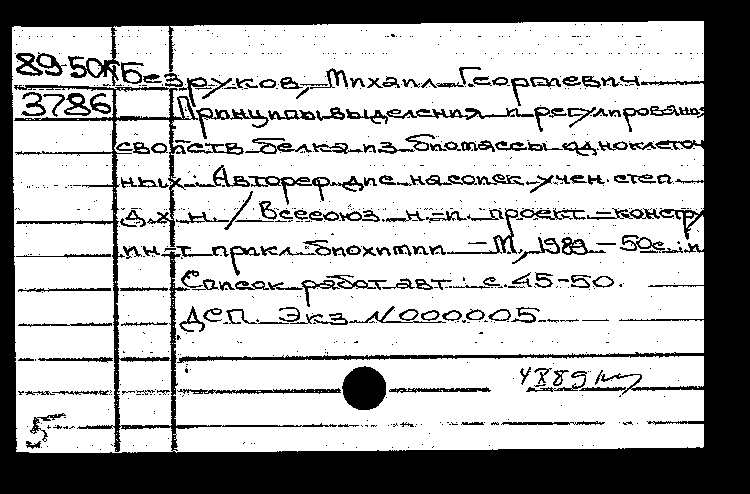 89-50к Безруков, Михаил Георгиевич
3786 Принципы выделения и регулирования
свойств белка из биомассы одноклеточ
ных : Автореф. дис. на соиск. учен. степ.
д. х. н. / Всесоюз. н.-и. проект.-констру
ин-т прикл. биохимии - М., 1989. - 50с. : и
Список работ авт. : с. 45-50.
ДСП. Экз. N000005
5